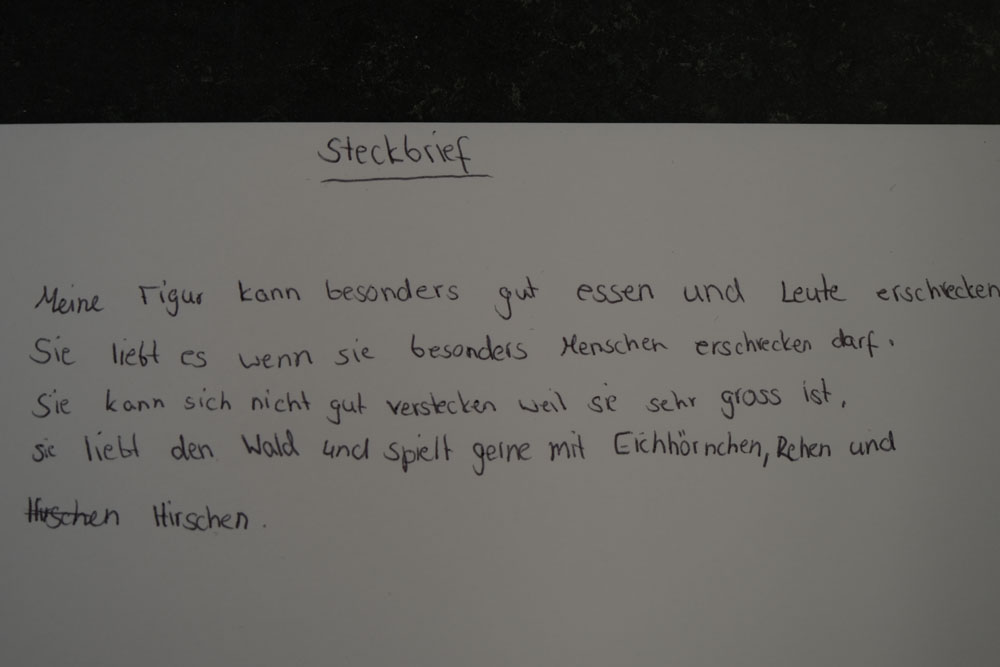 Steckbrief
Meine Figur kann besonders gut essen und Leute erschrecken
Sie liebt es wenn sie besonders Menschen erschrecken darf.
Sie kann sich nicht gut verstecken weil sie sehr gross ist,
sie liebt den Wald und spielt gerne mit Eichhörnchen, Rehen und
Hirschen.